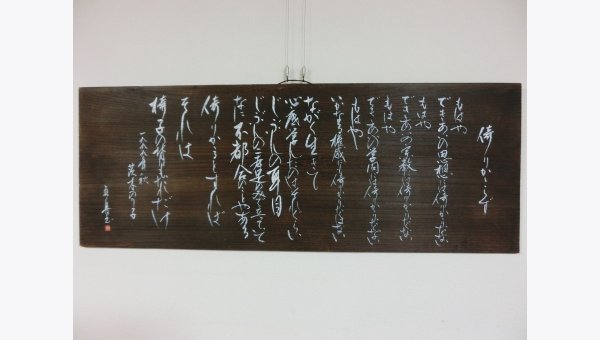 倚りかからず
もはや
できあいの思想には倚りかかりたくない
もはや
できあいの宗教には倚りかかりたくない
もはや
できあいの学問には倚りかかりたくない
もはや
いかなる権威にも倚りかかりたくはない
ながく生きて
心底学んだのはそれぐらい
じぶんの耳目
じぶんの二本足のみで立っていて
なに不都合のことやある
倚りかかるとすれば
それは
椅子の背もたれだけ
一九九九年 秋
茨木のり子